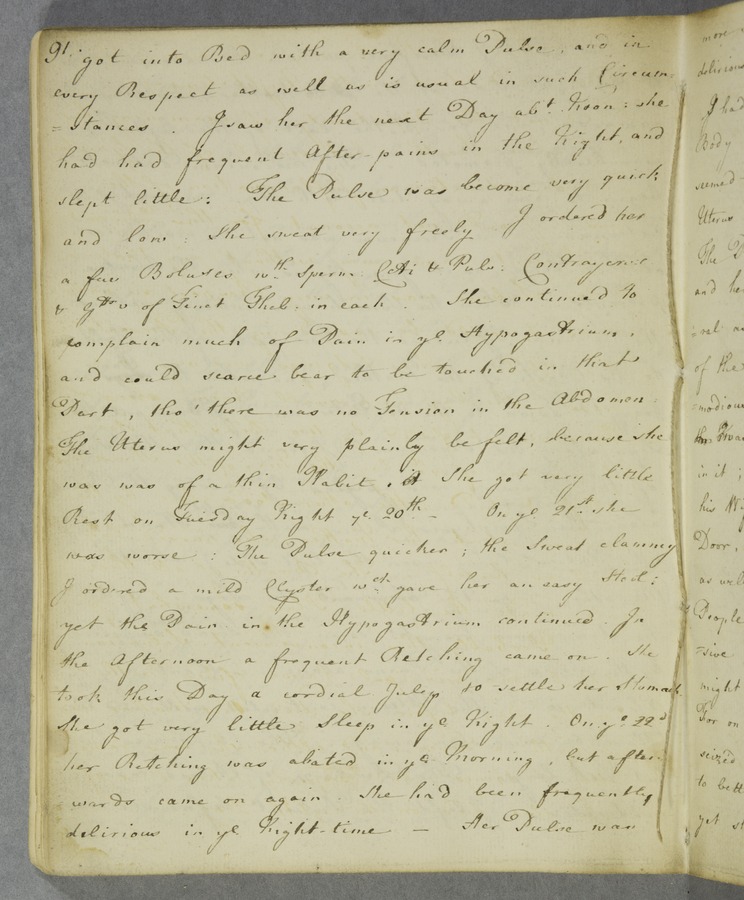 91. got into Bed with a very calm Pulse, and in
every Respect as well as is usual in such Circum
=stances. I saw her the next Day abt. Noon: she
had had frequent After-pains in the Night, and
slept little: The Pulse was become very quick
and low: She sweat very freely I ordered her
a few Boluses wth. Sperm Ceti & Pulv. Contrayerv
& gtt v of Tinct Theb. in each. She continued to
complain much of Pain in ye. Hypogastrium,
and could scarce bear to be touched in that
Part, tho' there was no Tension in the Abdomen
The Uterus might very plainly be felt, because she
was was of a thin Habit. She got very little
Rest on Tuesday Night ye. 20th - On ye. 21st. she
was worse: The Pulse quicker; the Sweat clammy
I ordered a mild Clyster wch. gave her an easy Stool:
yet the Pain in the Hypogastrium continued. In
the Afternoon a frequent Retching came on. She
took this Day a cordial Julep to settle her Stomach
She got very little Sleep in ye Night. On ye. 22d
her Retching was abated in ye Morning, but after
wards came on again. She had been frequently
delirious in ye Night-time — Her Pulse was
more
delirious
I had
Body
Uterus
The
and he
of the
=modious
in it;
his
Door,
as well
People
=sive
might
For on
seized
to bett
yet st